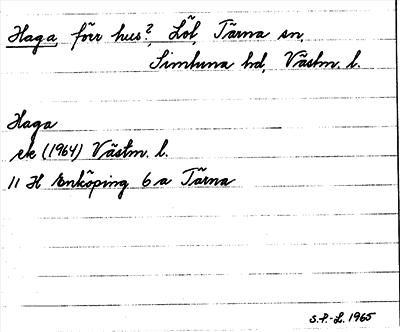 Haga, förr hus?, Löl, Tärna sn,
Simtuna hd, Västm. l.
Haga
ek (1964) Västm. l.
11 H Enköping 6 a Tärna
S.P.-L. 1965